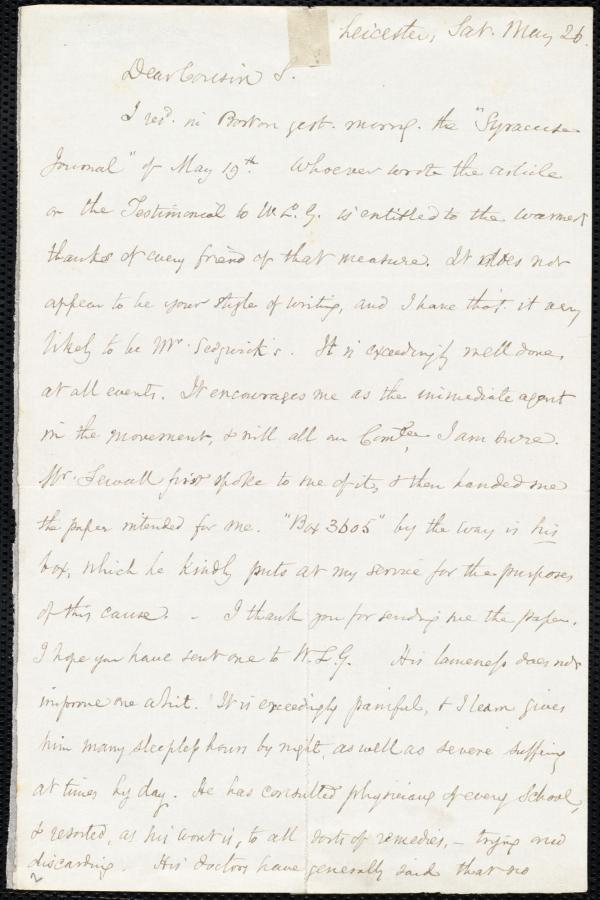 Leicester, Sat. May 26.
Dear Cousin S.
I recd. in Boston yest. morng. the "Syracuse
Journal" of May 19th. Whoever wrote the article
on the Testimonial to W. L. G. is entitled to the warmest
thanks of every friend of that measure. It does not
appear to be your style of writing, and I have thot. it very
likely to be Mr. Sedgwick's. It is exceedingly well done,
at all events. It encourages me as the immediate agent
in the movement, & will all our Comtee, I am sure.
Mr. Sewall first spoke to me of it, & then handed me
the paper intended for me. "Box 3605" by the way is his
box, which he kindly puts at my service for the purposes
of this cause. - I thank you for sending me the paper.
I hope you have sent one to W. L. G. His lameness does not
improve one whit. It is exceedingly painful, & I learn gives
him many sleepless hours by night, as well as severe suffering
at times by day. He has consulted physicians of every school,
& resorted, as his wont is, to all sorts of remedies, - trying and
discarding. His doctors have generally said that no